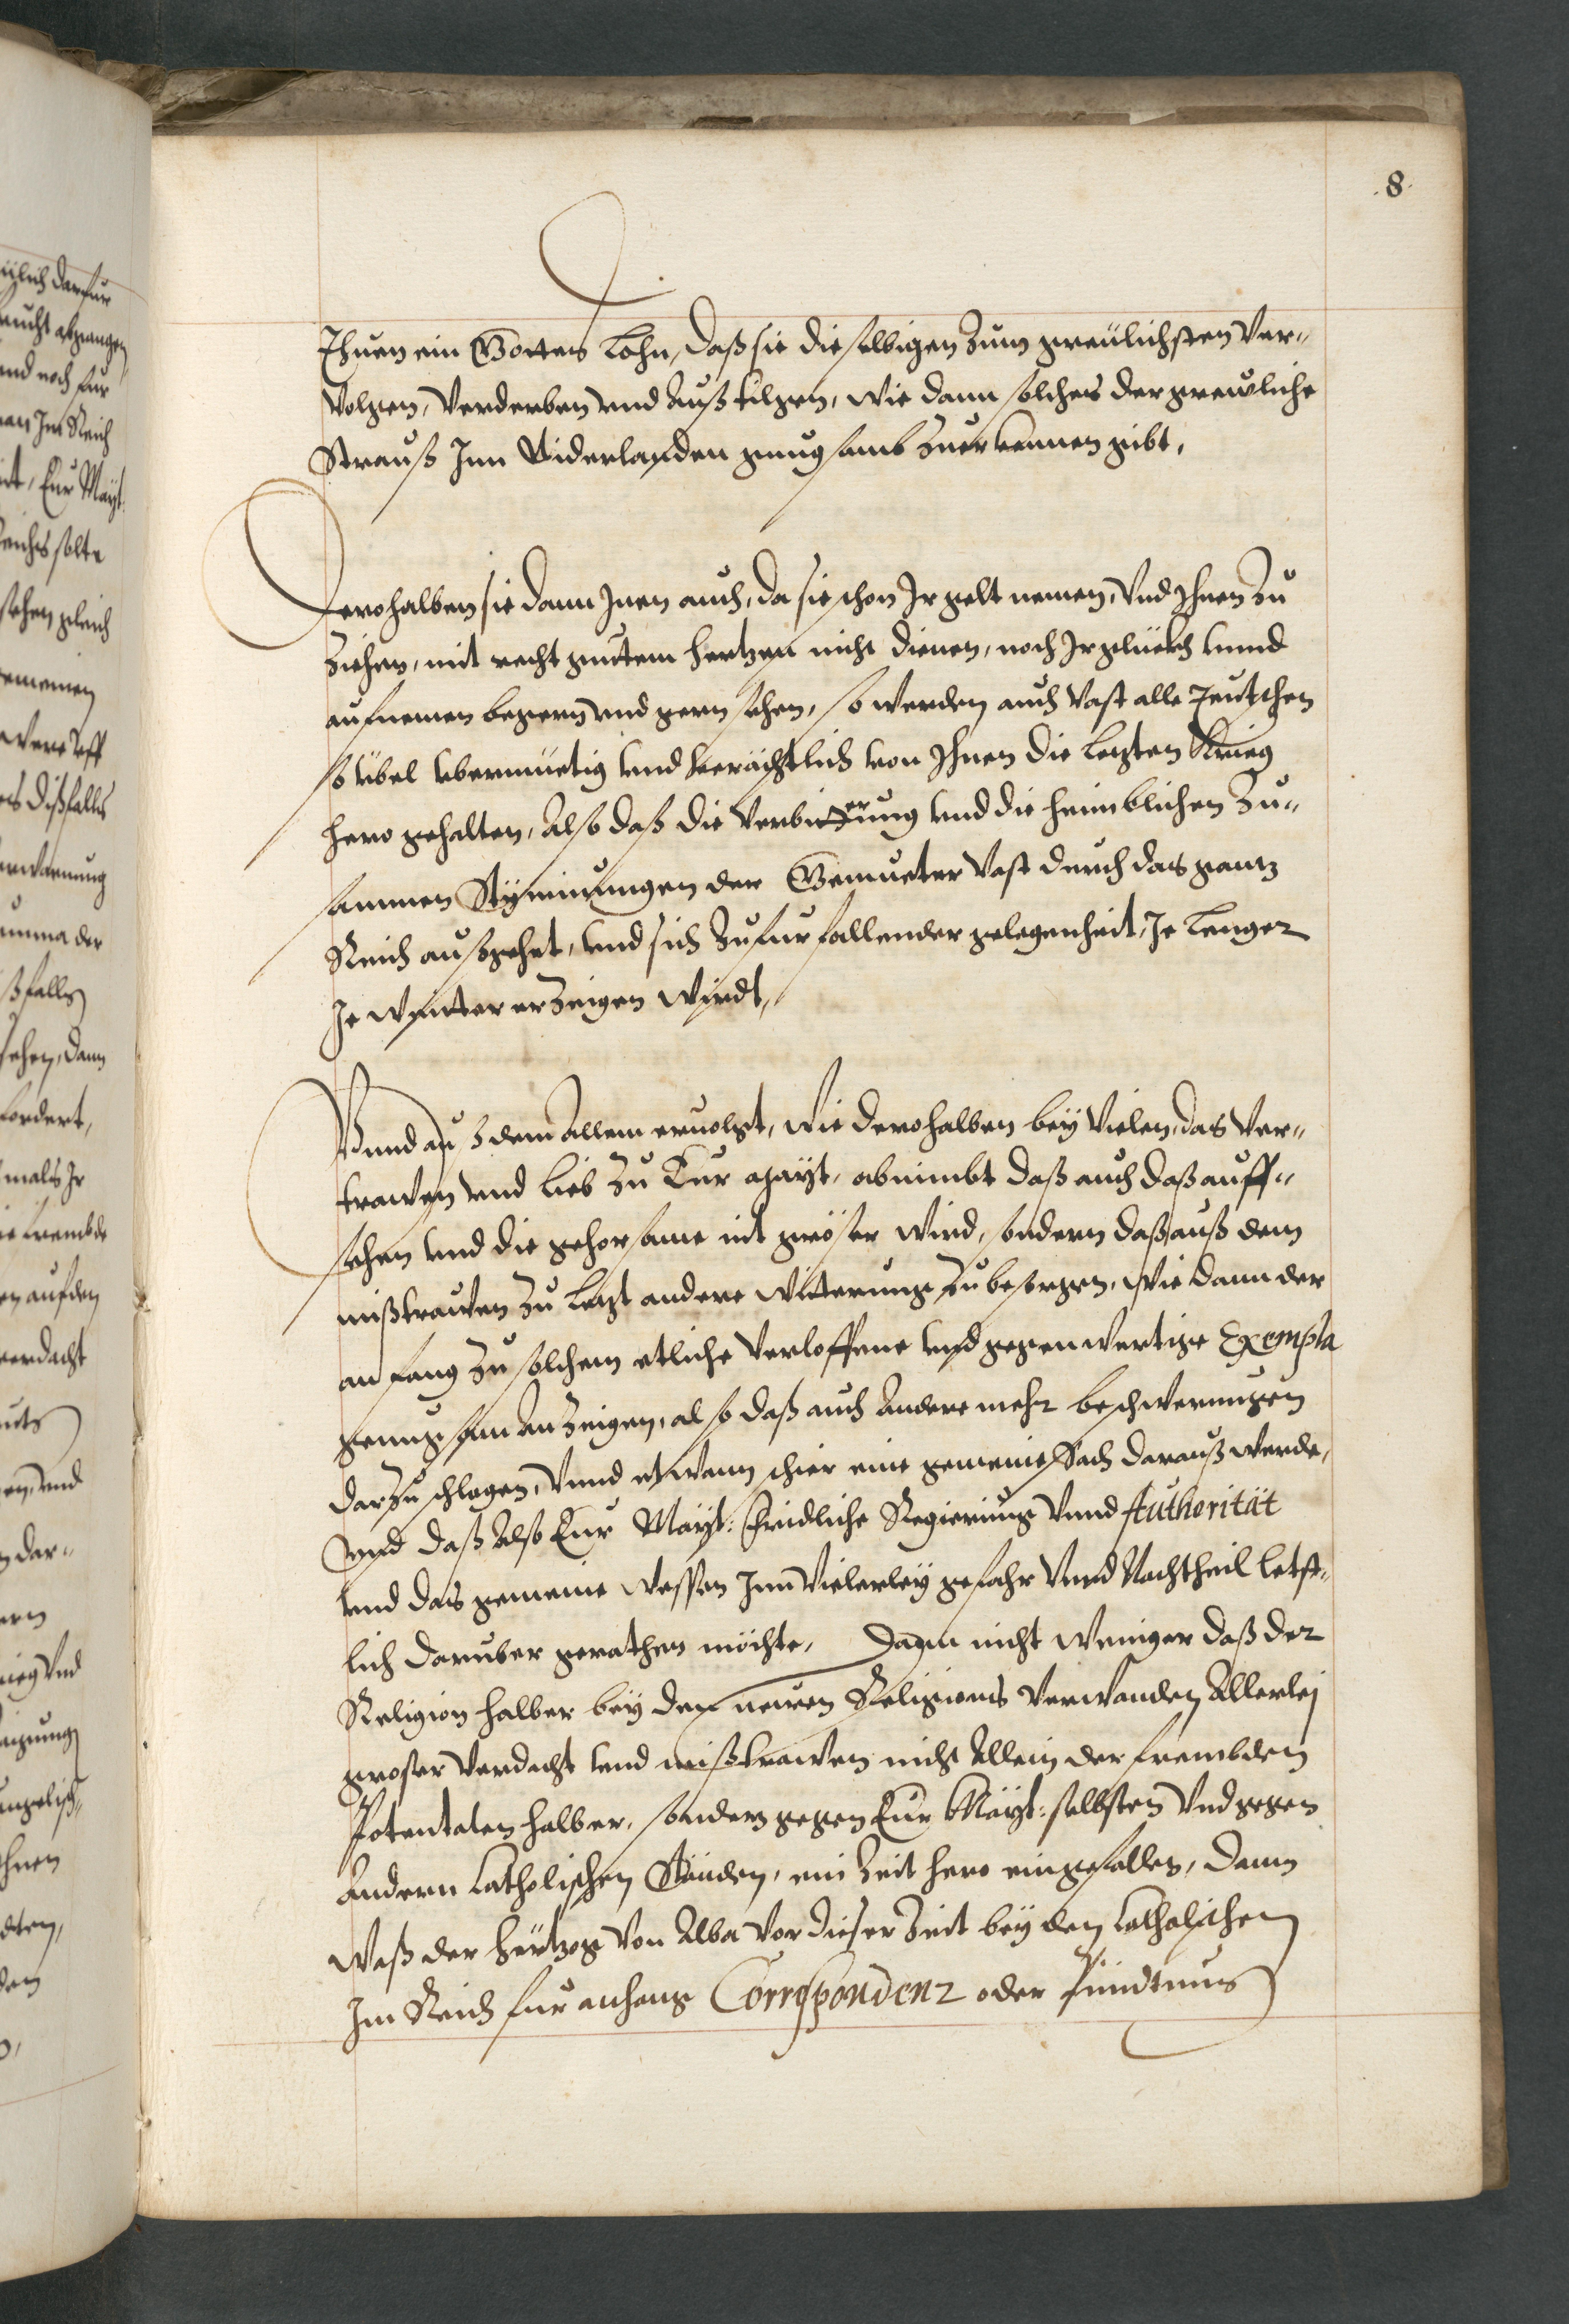 8
Ihnen ein Gottes Lohn, daß sie dieselbigen zum greulichsten Ver-
volgen, Verderben vnd Außtilgen, wie dann solches der grewliche
Strauß Inn Niderlanden gnugsamb zuerkennen gibt,
Derohalben sie dann Inen auch, da sie schon Ir gelt nemen, Vnd Ihnen zu
ziehen, mit recht guttem hertzen nicht dienen, noch Ir glückh vnnd
aufnemen begeren vnd gern sehen, so werden auch Vast alle Teutschen
so übel vbermuetig vnd verächtlich von Ihnen die letzten Krieg
hero gehalten, Also daß die Verbitterung vnd die heimblichen Zu-
samen Stimmungen der Gemueter Vast durch das gantz
Reich außgehet, vnd sich zufurfallender gelegenheit, Je lenger
Je weitter erzeigen wirdt,
Vnnd auß dem Allem ervolgt, wie derohalben bey Vielen, das Ver-
trawen vnd lieb zu Eur Mayt. abnimbt daß auch daß auff-
sehen vnd die gehorsame nit größer wird, sondern daß auß dem
mißtrauen zu letzt andere Witterung zu besorgen, wie dann der
anfang zu solchem etliche Verloffene vnd gegenwertige Exempla
genugsam Anzeigen, also daß auch Andere mehr beschwerungen
darzu schlagen, Vnnd etwann schier eine gemeine Sach darauß werde,
vnd daß Also Eur Mayt: fridliche Regierung Vnnd Authorität
vnd das gemeine Wessen Inn Vielerley gefahr Vnnd Nachtheil letst-
lich daruber gerathen möchte, Dann nicht weniger daß der
Religion halber bey den neuen Religions Verwanden Allerlej
großer Verdacht vnd mißtrawen nicht Allein der frembden
Potentaten halber, sondern gegen Eur Mayt: selbsten Vnd gegen
Andern Catholischen Ständen, ein Zeit hero eingefallen, Dann
Waß der Hertzog Von Alba Vor dieser Zeit bey den Catholischen
Im Reich fur anhang Correspondenz oder Pündtnus